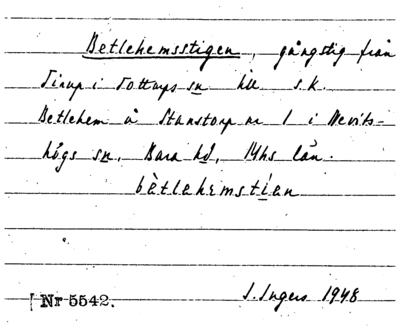 Betlehemsstigen, gångstig från
Tirup i Tottarps sn till s.k.
Betlehem å Stanstorp nr 1 i Nevits-
högs sn, Bara hd, Mhs län.
bètlehemstíen
Nr 5542.
I. Ingers 1948